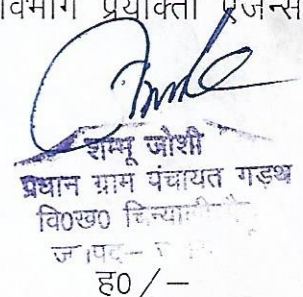 विभाग प्रयोक्ता एजेन्स
शम्भू जोशी
प्रधान ग्राम पंचायत गड़थ
वि०ख०
ह० / –